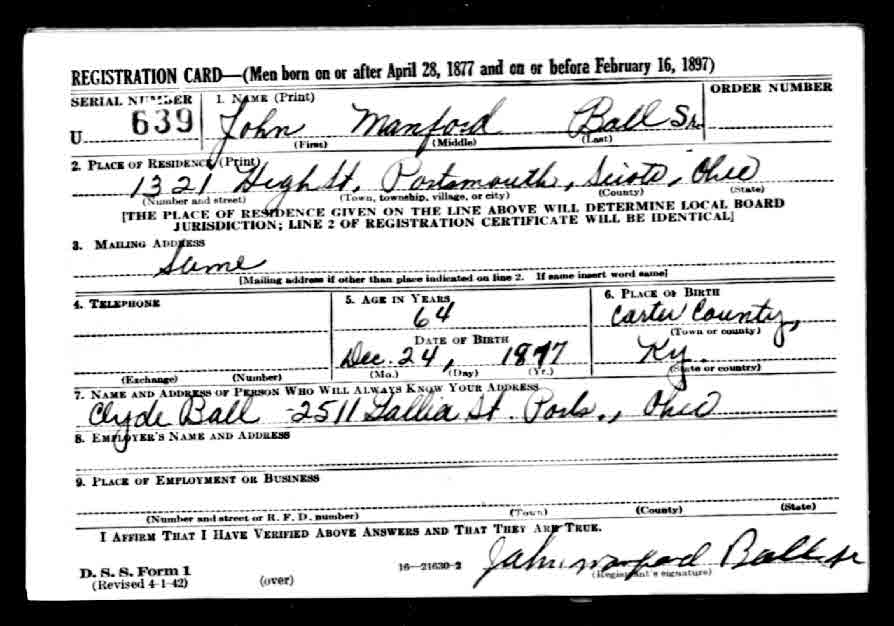 REGISTRATION CARD—(Men born on or after April 28, 1877 and on or before February 16, 1897)
SERIAL NUMBER
1. NAME (Print)
ORDER NUMBER
U 639
John Manford Ball Sr.
(First) (Middle) (Last)
2. PLACE OF RESIDENCE (Print)
1321 High St. Portsmouth, Sioto, Ohio
(Number and street) (Town, township, village, or city) (County) (State)
[THE PLACE OF RESIDENCE GIVEN ON THE LINE ABOVE WILL DETERMINE LOCAL BOARD
JURISDICTION; LINE 2 OF REGISTRATION CERTIFICATE WILL BE IDENTICAL]
3. MAILING ADDRESS
Same
[Mailing address if other than place indicated on line 2. If same insert word same]
4. TELEPHONE
5. AGE IN YEARS
6. PLACE OF BIRTH
64
Carter County,
DATE OF BIRTH
(Town or county)
Dec. 24, 1877
Ky.
(Exchange) (Number)
(Mo.) (Day) (Yr.)
(State or country)
7. NAME AND ADDRESS OF PERSON WHO WILL ALWAYS KNOW YOUR ADDRESS
Clyde Ball - 2511 Gallia St. Ports., Ohio
8. EMPLOYER'S NAME AND ADDRESS
9. PLACE OF EMPLOYMENT OR BUSINESS
(Number and street or R. F. D. number) (Town) (County) (State)
I AFFIRM THAT I HAVE VERIFIED ABOVE ANSWERS AND THAT THEY ARE TRUE.
D. S. S. Form 1
(Revised 4-1-42)
(over)
16—21630-2
John Manford Ball Sr
(Registrant's signature)